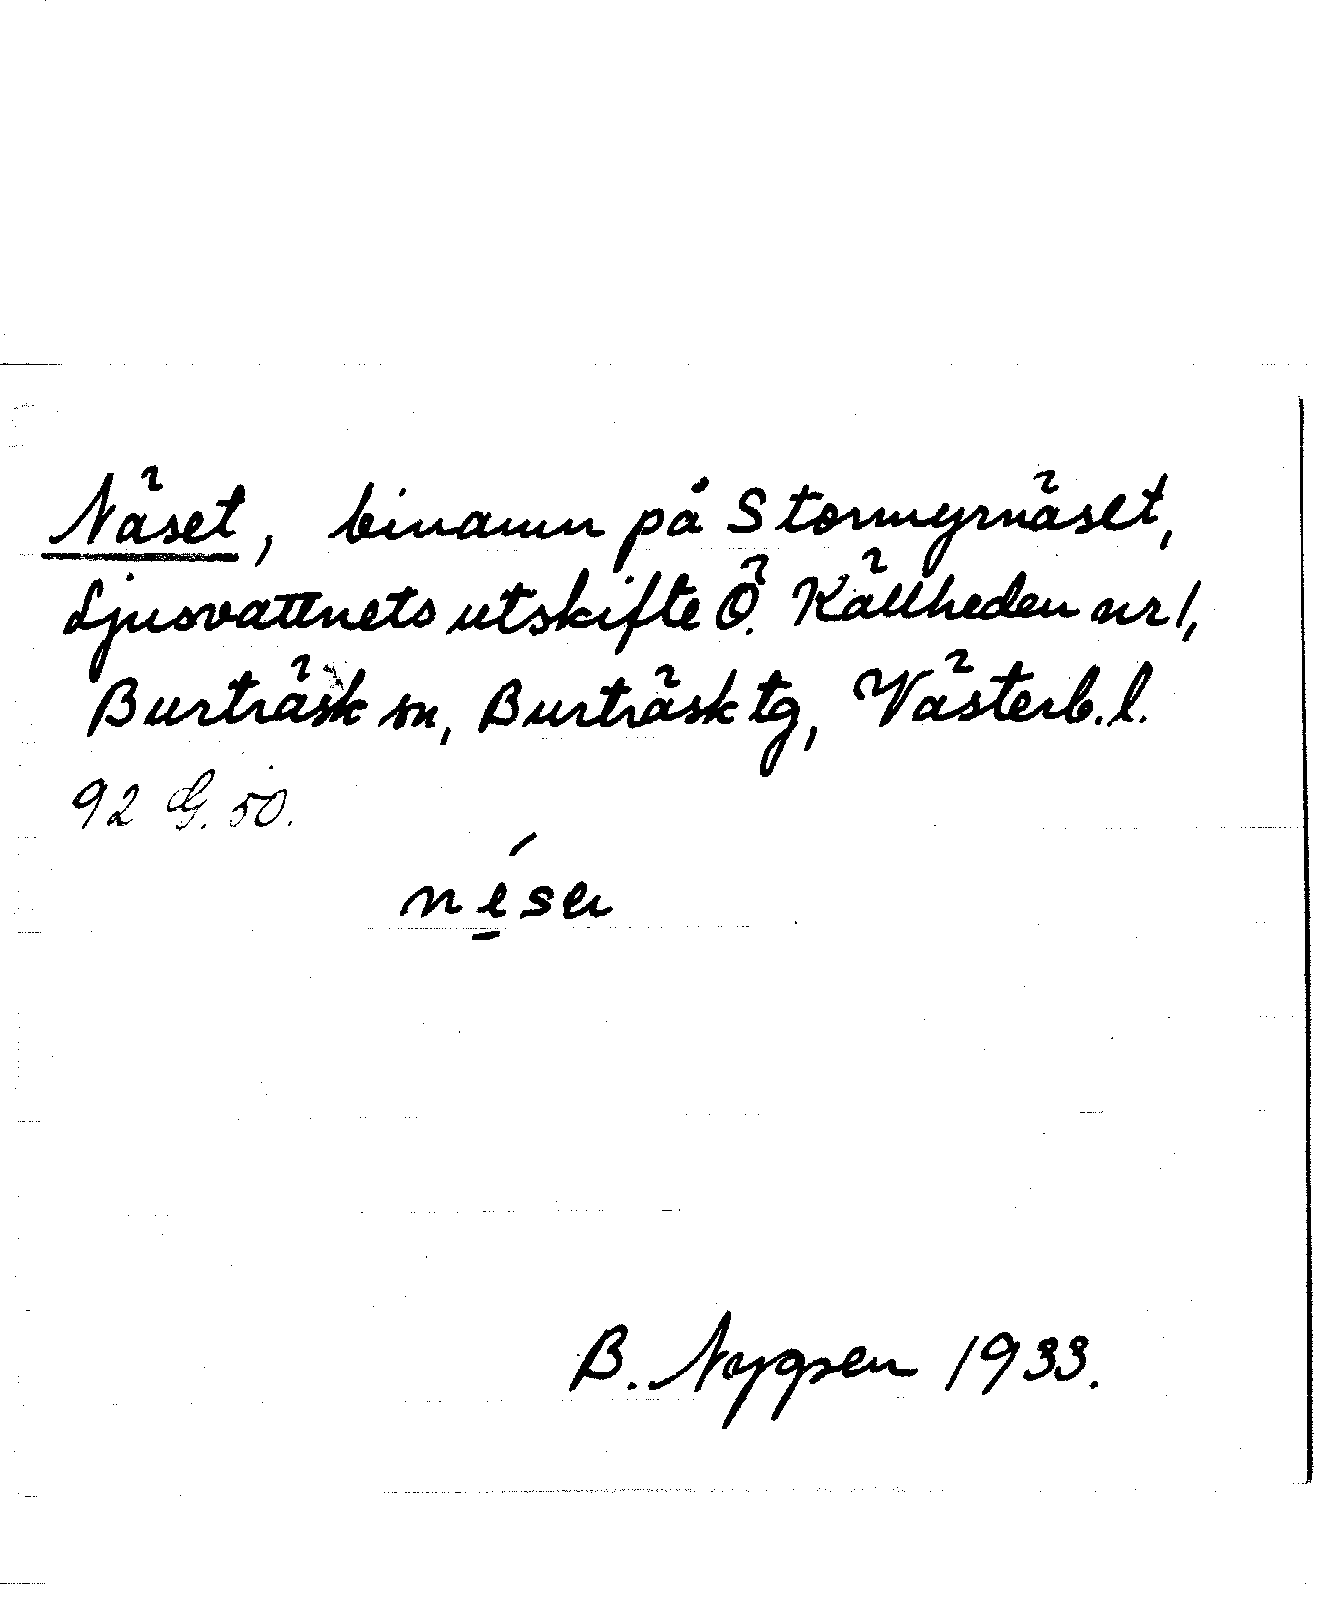 Näset, binamn på Stormyrnäset,
Ljusvattnets utskifte Ö. Källheden nr 1,
Burträsk sn, Burträsk tg, Västerb. l.
92 G. 50.
B. Nygren 1933.